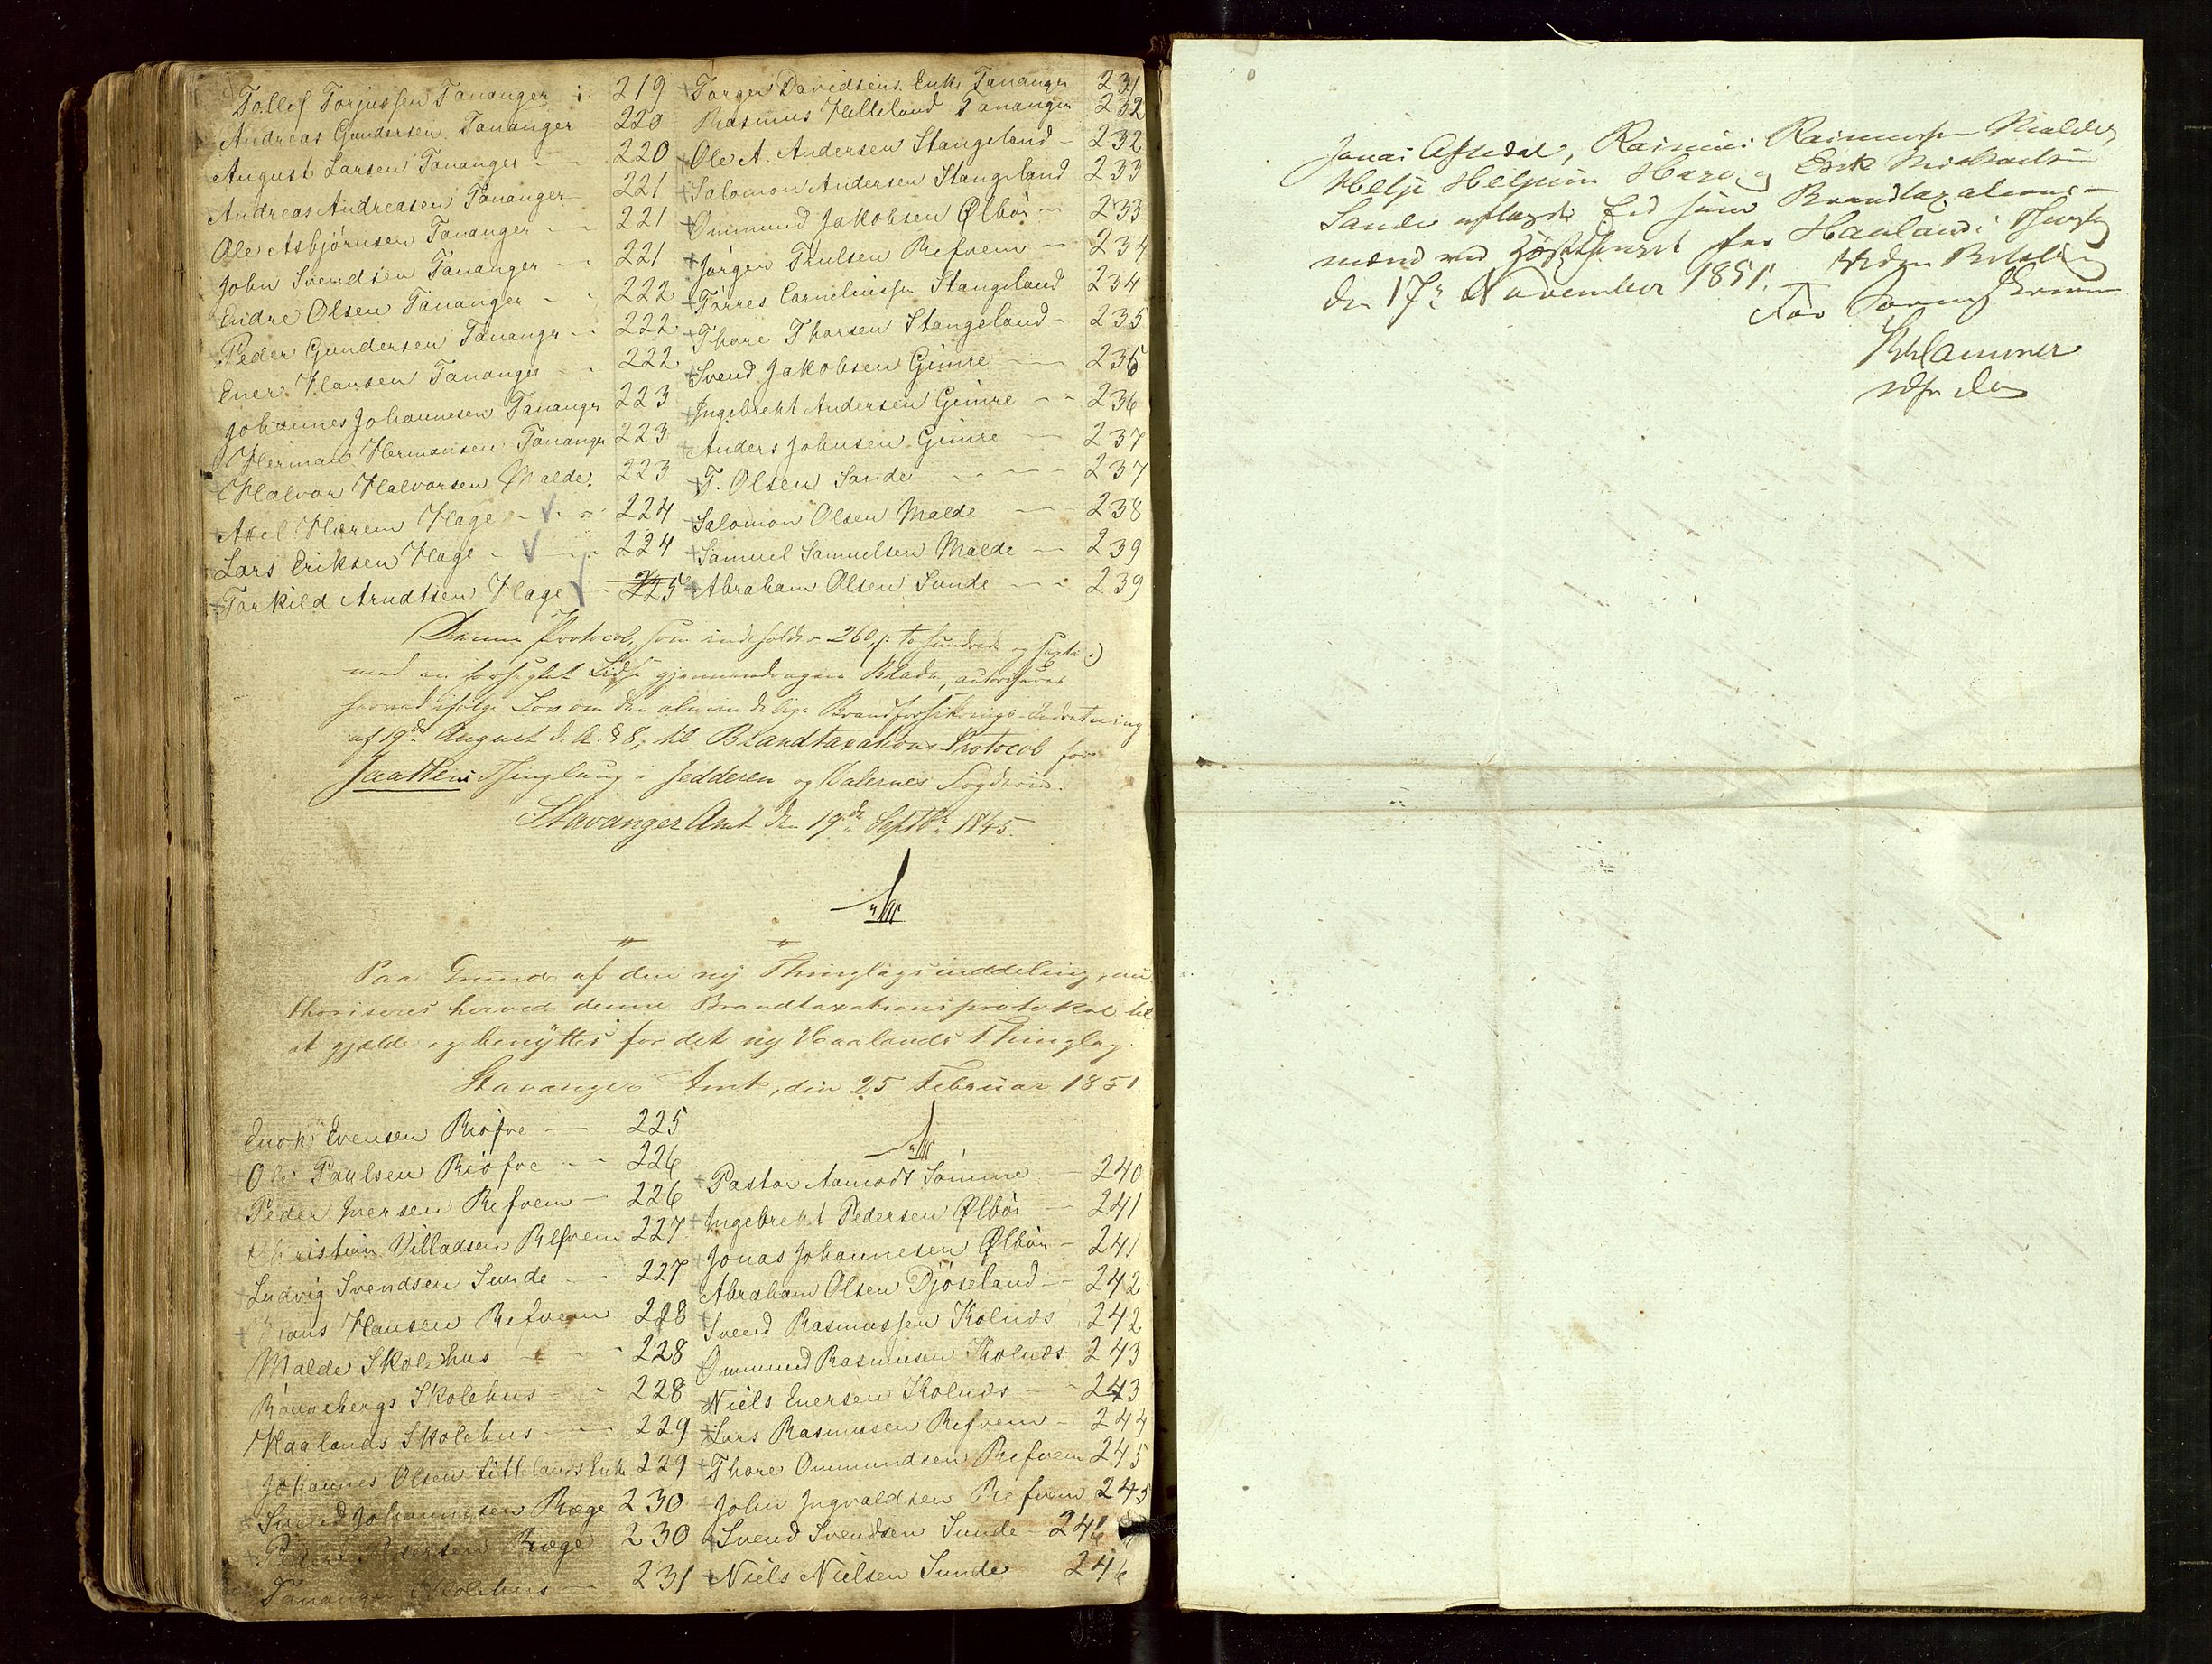 Tollef Torjussen Tananger 219
Andreas Gundersen Tananger 220
August Larsen Tananger 220
Andreas Andreasen Tananger 221
Ole Asbjörnsen Tananger 221
John Svendsen Tananger 221
Endre Olsen Tananger 222
Peder Gundersen Tanangr 222
Ener Hansen Tananger 222
Johannes Johannesen Tananger 223
Herman Hermansen Tananger 223
Halvor Halvorsen Malde 223
Axel Hærem Hage 224
Lars Eriksen Hage 224
Torkild Arndtsen Hage 225
Torger Davidsens Enke Tananger 231
Rasmus Helleland Tananger 232
Ole A. Andersen Stangeland 232
Salomon Andersen Stangeland 233
Ommund Jakobsen Ølbör 233
Jörgen Trulsen Refvem 234
Törres Corneliussen Stangeland 234
Thore Thorsen Stangeland 235
Svend Jakobsen Gimre 236
Ingebreht Andersen Gimre 236
Anders Johnsen Gimre 237
T. Olsen Sande 237
Salomon Olsen Malde 238
Samuel Samuelsen Malde 239
Abraham Olsen Sunde 239
Denne Protocol, som indeholder 260, /: to hundrede og sexti :/
med en forseglet Lidse gjennemdragne Blade, autoriseres
herved ifølge Lov om den almindelige Brandforsikrings-Indretning
af 19de August d. A. § 8, til Brandtaxations-Protocol for
Jaattens Thinglaug i Jedderen og Dalernes Fogderie.
Stavanger Amt den 19de Septbr 1845.
Paa Grund af den ny Thinglagsinddeling, au-
thoriseres herved denne Brandtaxationsprotokol til
at gjælde og benyttes for det ny Haalands Thinglag.
Stavanger Amt, den 25 Februar 1851.
Enok Evensen Riöfve 225
Ole Paulsen Riöfve 226
Peder Iversen Refvem 226
Christian Villadsen Refvem 227
Ludvig Svendsen Sunde 227
Hans Hansen Refvem 228
Malde Skolehus 228
Rönnebergs Skolehus 228
Haalands Skolehus 229
Johannes Olsen Litlelands Enke 229
Svend Johannesen Ræge 230
Peder Pedersen Ræge 230
Tananger Skolehus 231
Pastor Aamodt Sömme 240
Ingebreht Pedersen Ølbör 241
Jonas Johannesen Ølbör 241
Abraham Olsen Djöseland 242
Svend Rasmussen Kolnæs 242
Ommund Rasmusen Kolnæs 243
Niels Enersen Kolnæs 243
Lars Rasmussen Refvem 244
Thore Ommundsen Refvem 245
John Ingvaldsen Refvem 245
Svend Svendsen Sunde 246
Niels Nielsen Sunde 246
Rasmus Rasmussen Malde,
Helje Heljesen Haga og Erik Michaelsen
Sande aflagde Eed som Brandtaxations-
mænd ved Høstthinget for Haalands Thinglag
den 17de November 1851.